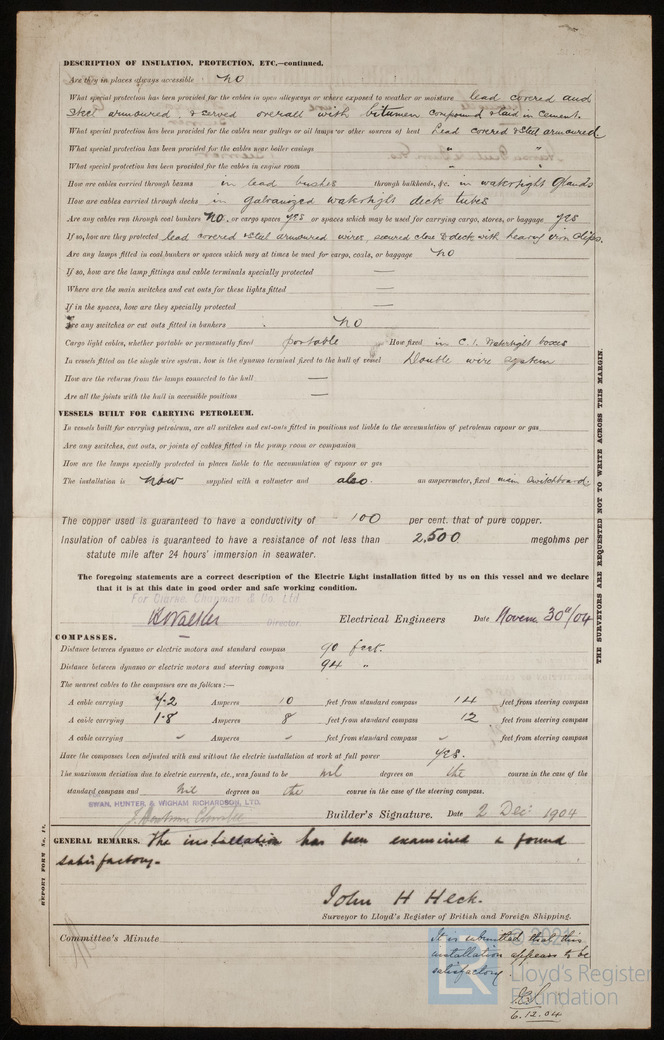 DESCRIPTION OF INSULATION, PROTECTION, ETC.—continued.
Are they in places always accessible no
What special protection has been provided for the cables in open alleyways or where exposed to weather or moisture lead covered and
steel armoured & served overall with bitumen compound & laid in cement.
What special protection has been provided for the cables near galleys or oil lamps or other sources of heat Lead covered & steel armoured
What special protection has been provided for the cables near boiler casings " "
What special protection has been provided for the cables in engine room " "
How are cables carried through beams in lead bushes through bulkheads, &c. in watertight Glands
How are cables carried through decks in galvanized watertight deck tubes
Are any cables run through coal bunkers No. or cargo spaces yes or spaces which may be used for carrying cargo, stores, or baggage yes
If so, how are they protected lead covered & steel armoured wires, secured close to deck with heavy iron clips.
Are any lamps fitted in coal bunkers or spaces which may at times be used for cargo, coals, or baggage no
If so, how are the lamp fittings and cable terminals specially protected —
Where are the main switches and cut outs for these lights fitted —
If in the spaces, how are they specially protected —
Are any switches or cut outs fitted in bunkers no
Cargo light cables, whether portable or permanently fixed portable How fixed in C.I. Watertight boxes
In vessels fitted on the single wire system, how is the dynamo terminal fixed to the hull of vessel Double wire system
How are the returns from the lamps connected to the hull —
Are all the joints with the hull in accessible positions —
VESSELS BUILT FOR CARRYING PETROLEUM.
In vessels built for carrying petroleum, are all switches and cut-outs fitted in positions not liable to the accumulation of petroleum vapour or gas
Are any switches, cut outs, or joints of cables fitted in the pump room or companion
How are the lamps specially protected in places liable to the accumulation of vapour or gas
The installation is now supplied with a voltmeter and also an amperemeter, fixed main Switchboard.
The copper used is guaranteed to have a conductivity of 100 per cent. that of pure copper.
Insulation of cables is guaranteed to have a resistance of not less than 2,500 megohms per
statute mile after 24 hours' immersion in seawater.
The foregoing statements are a correct description of the Electric Light installation fitted by us on this vessel and we declare
that it is at this date in good order and safe working condition.
For Clarke, Chapman & Co. Ltd.
Director Electrical Engineers Date Novem 30th/04
COMPASSES.
Distance between dynamo or electric motors and standard compass 90 feet.
Distance between dynamo or electric motors and steering compass 94 "
The nearest cables to the compasses are as follows:—
A cable carrying 7.2 Amperes 10 feet from standard compass 14 feet from steering compass
A cable carrying 1.8 Amperes 8 feet from standard compass 12 feet from steering compass
A cable carrying " Amperes " feet from standard compass " feet from steering compass
Have the compasses been adjusted with and without the electric installation at work at full power yes.
The maximum deviation due to electric currents, etc., was found to be nil degrees on the course in the case of the
standard compass and nil degrees on the course in the case of the steering compass.
SWAN, HUNTER & WIGHAM RICHARDSON, LTD.
Builder's Signature. Date 2 Dec 1904
GENERAL REMARKS. The installation has been examined & found
satisfactory.
John H Heck.
Surveyor to Lloyd's Register of British and Foreign Shipping.
Committee's Minute
It is submitted that this
installation appears to be
satisfactory
6.12.04
REPORT FORM No. 13.
THE SURVEYORS ARE REQUESTED NOT TO WRITE ACROSS THIS MARGIN.
Lloyd's Register
Foundation